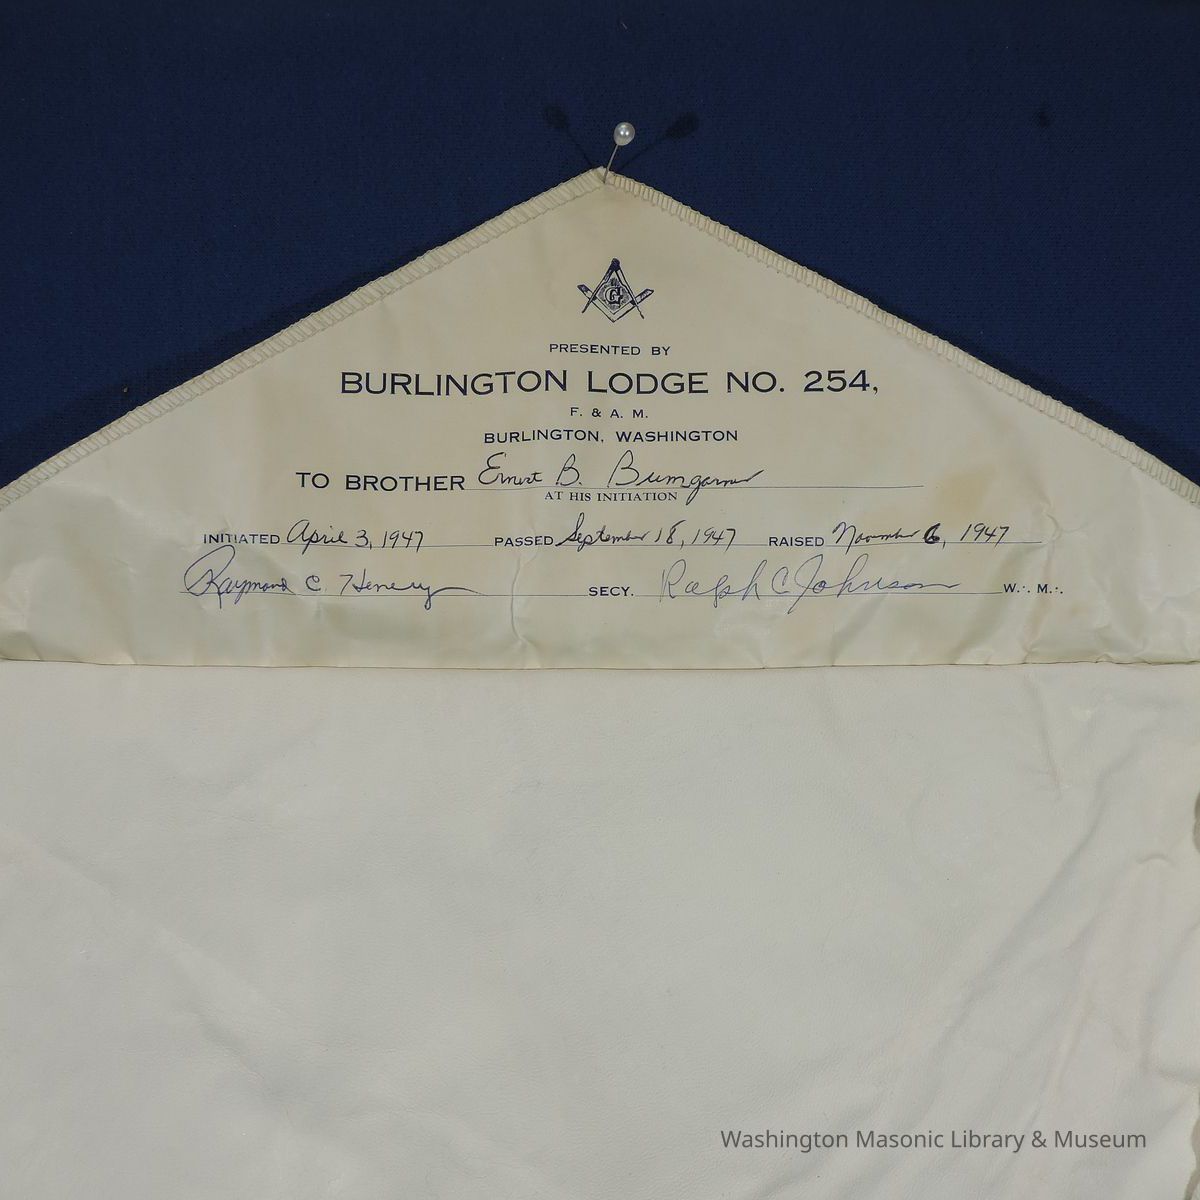 G
PRESENTED BY
BURLINGTON LODGE NO. 254,
F. & A. M.
BURLINGTON, WASHINGTON
TO BROTHER Ernest B. Bumgarner
AT HIS INITIATION
INITIATED April 3, 1947 PASSED September 18, 1947 RAISED November 6, 1947
Raymond C. Henery SECY. Ralph C Johnson W∴ M∴
Washington Masonic Library & Museum